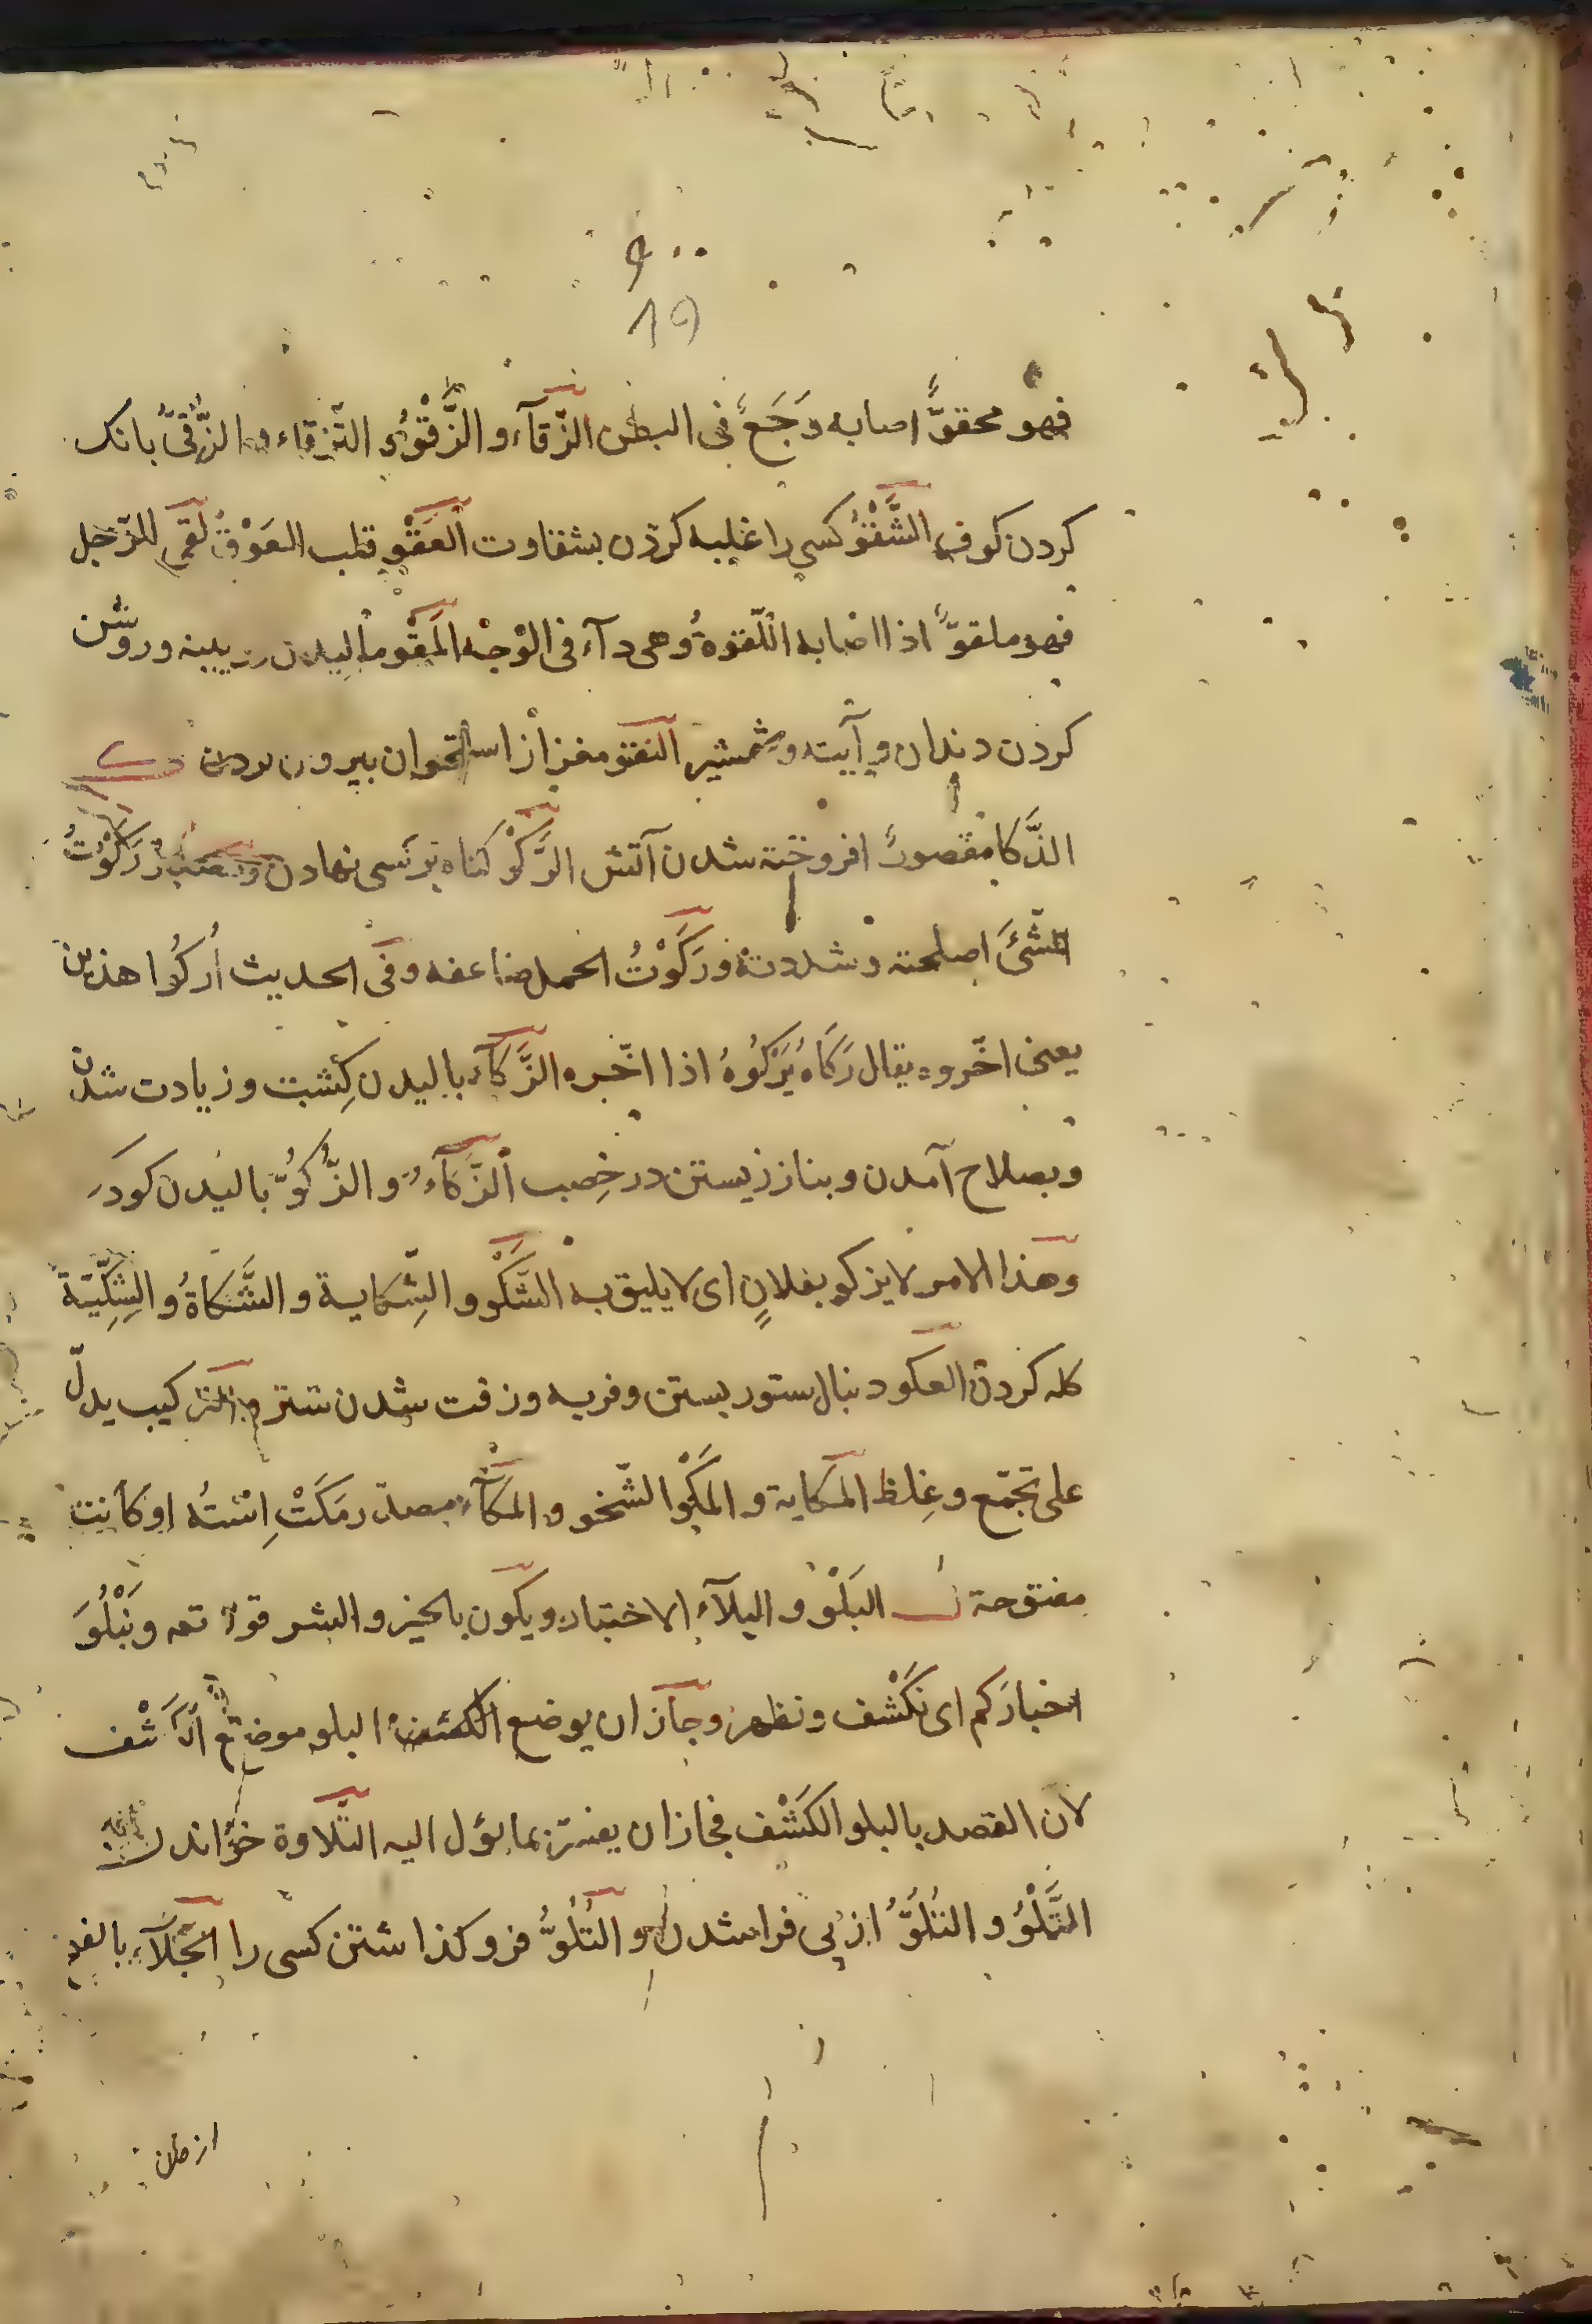 ۹۰۰
19
فهو محقوٌّ اصابه وَجَعٌ فى البطن الزّقآء و الزَّقْوُ و التّزقاء و الزُّقىّ بانك
كردن كوف الشَّقْوُ كسى را غلبه كردن بشقاوت العَقْو قلب العَوْق لُقِىَ للرّجل
فهو ملقوٌّ اذا اصابه اللّقوةُ وهى دآء فى الوْجه المَقْو ماليدن و روشن
كردن دندان و آيينه و شمشير النقو مغز از استخوان بيرون بردن ك
الذَّكا مقصورٌ افروخته شدن آتش الرَّكْوُ كناه بر كسى نهادن رَكَوْتُ
الشّئَ اصلحته و شددته و رَكَوْتُ الحمل ضاعفه و فى الحديث اُركُوا هذين
يعنى اخّروه يقال رَكَاهُ يَرْكُوهُ اذا اخّره الزَّكآء باليدن كِشت و زيادت شدن
و بصلاح آمدن و بناز زيستن در خِصب الزَّكآءُ و الزُّكُوُّ باليدن كودك
وهذا الامر لا يزكو بفلانٍ اى لا يليق به الشَّكْو و الشِّكاية و الشَّكاةُ و الشِّكِيّة
كله كردن العكو دنبال ستور بستن و فربه و زفت شدن شتر و التركيب يدلّ
على تجمّع و غِلظ المكاية و المَكْوُ الشّخو و المكآء مصدر مَكَتْ اِسْتُه اذا كانت
مفتوحة ل البَلْوُ و البلآء الاختبار و يكون بالخير و الشر قوله تعه وَنَبْلُوَ
اخبارَكم اى نَكْشف و نظهر و جاز ان يوضع البلو موضع الكَشْف
لان القصد بالبلو الكَشْف فجاز ان يفسّر بما يؤل اليه التّلاوة خواندن
التَّلْوُ و التُلُوّ از پى فرا شدن و التُلُوُّ فرو كذاشتن كسى را الجَلآء بالفتح
از خان